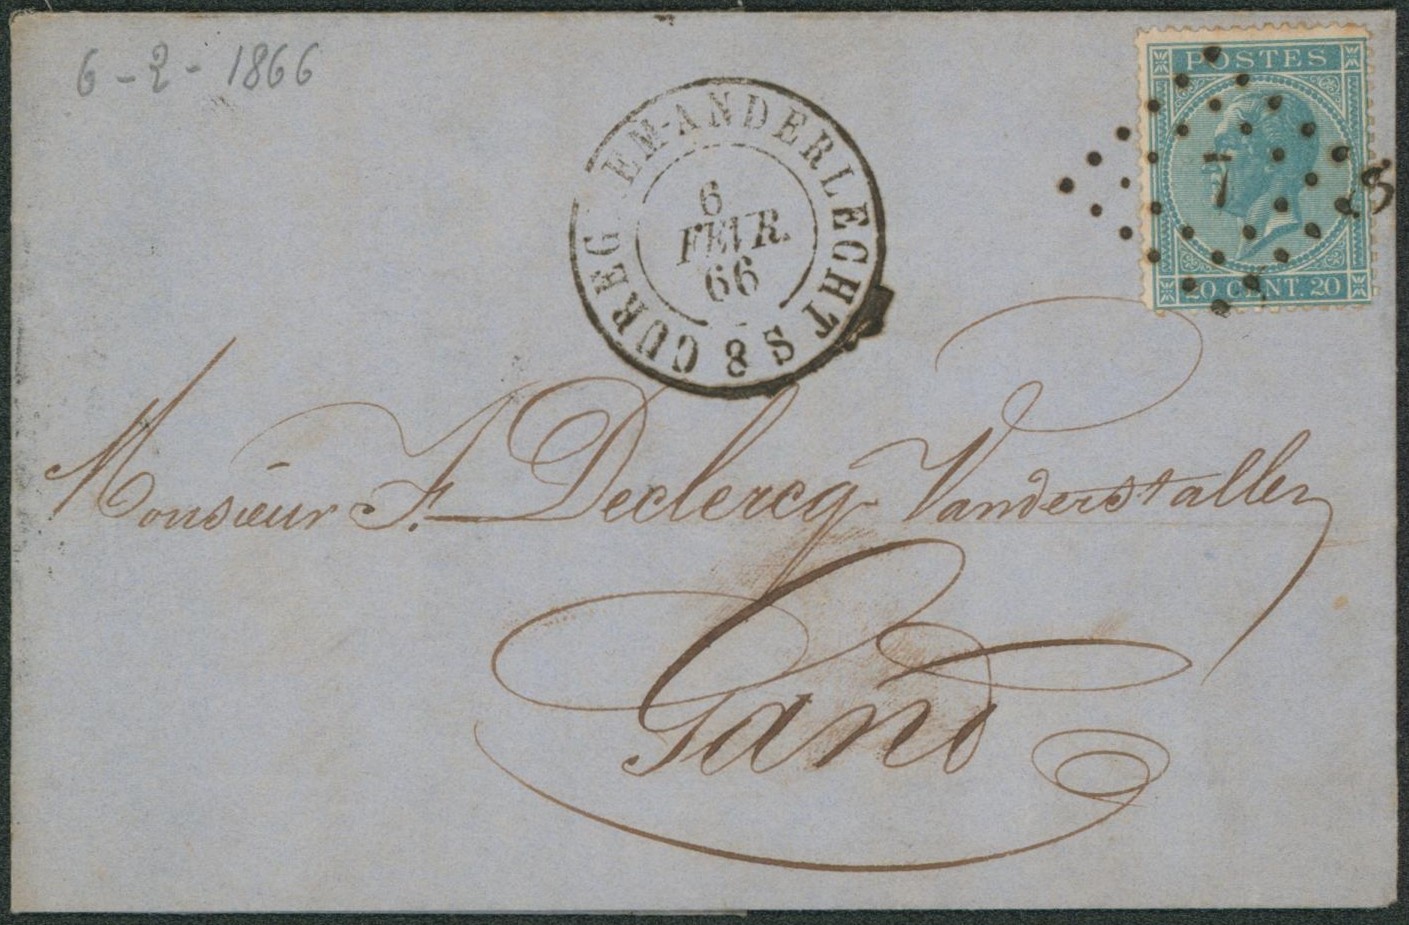 6-2-1866
CUREGEM-ANDERLECHT
8 S
6
FEVR.
66
POSTES
20 CENT. 20
Monsieur F. Declercq Vanderstallen
Gand